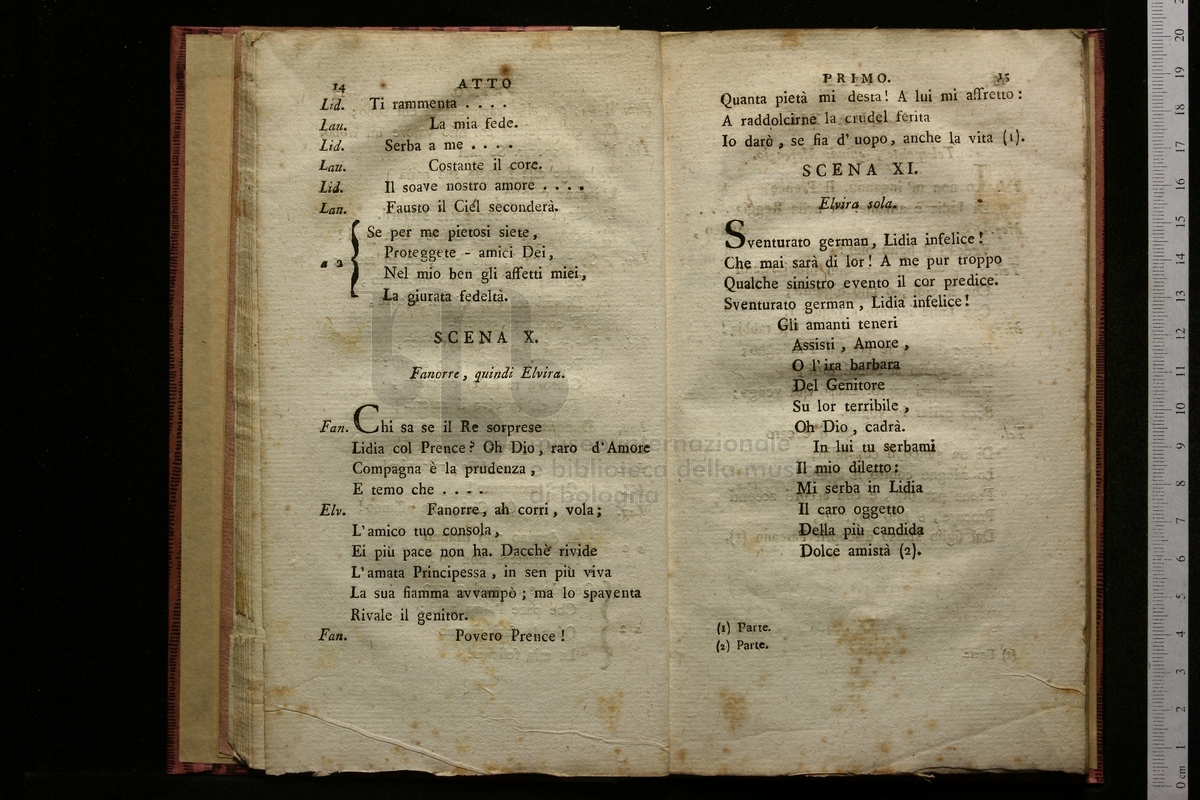 14 ATTO
Lid. Ti rammenta . . . .
Lau. La mia fede.
Lid. Serba a me . . . .
Lau. Costante il core.
Lid. Il soave nostro amore . . . .
Lau. Fausto il Ciel seconderà.
a 2 { Se per me pietosi siete,
Proteggete - amici Dei,
Nel mio ben gli affetti miei,
La giurata fedeltà.
SCENA X.
Fanorre, quindi Elvira.
Fan. Chi sa se il Re sorprese
Lidia col Prence? Oh Dio, raro d'Amore
Compagna è la prudenza,
E temo che . . . .
Elv. Fanorre, ah corri, vola;
L'amico tuo consola,
Ei più pace non ha. Dacchè rivide
L'amata Principessa, in sen più viva
La sua fiamma avvampò; ma lo spaventa
Rivale il genitor.
Fan. Povero Prence!
PRIMO. 15
Quanta pietà mi desta! A lui mi affretto:
A raddolcirne la crudel ferita
Io darò, se fia d'uopo, anche la vita (1).
SCENA XI.
Elvira sola.
Sventurato german, Lidia infelice!
Che mai sarà di lor! A me pur troppo
Qualche sinistro evento il cor predice.
Sventurato german, Lidia infelice!
Gli amanti teneri
Assisti, Amore,
O l'ira barbara
Del Genitore
Su lor terribile,
Oh Dio, cadrà.
In lui tu serbami
Il mio diletto:
Mi serba in Lidia
Il caro oggetto
Della più candida
Dolce amistà (2).
(1) Parte.
(2) Parte.